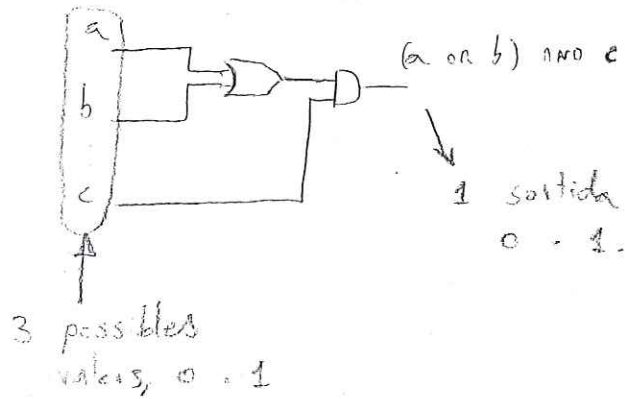 a
b
c
(a OR b) AND c
1 sortida
0 - 1.
3 possibles
valors, 0 - 1